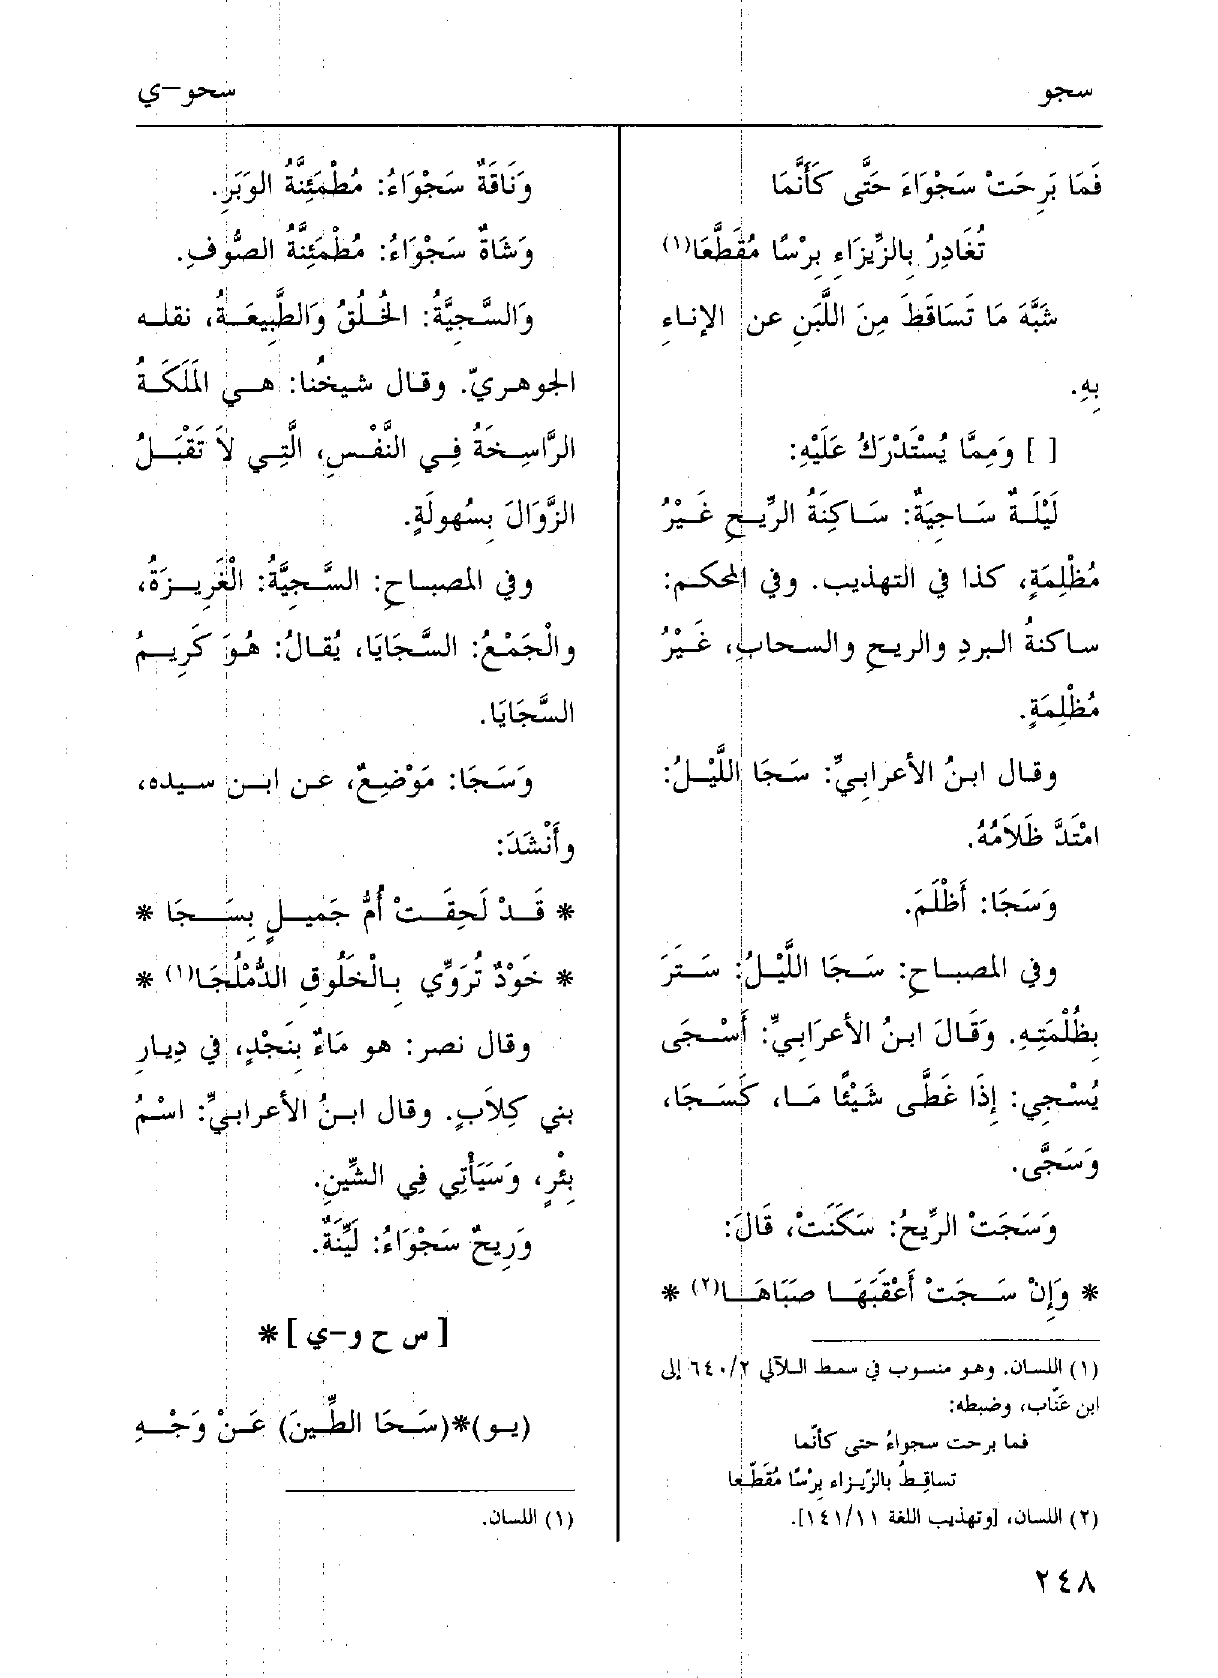 سجو
سحو-ي
فَمَا بَرِحَتْ سَجْوَاءَ حَتَّى كَأَنَّمَا
تُغَادِرُ بِالزِّيزَاءِ بِرْسًا مُقَطَّعَا(١)
شَبَّهَ مَا تَسَاقَطَ مِنَ اللَّبَنِ عن الإناءِ
بِهِ.
[ ] وَمِمَّا يُسْتَدْرَكُ عَلَيْهِ:
لَيْلَةٌ سَاجِيَةٌ: سَاكِنَةُ الرِّيحِ غَيْرُ
مُظْلِمَةٍ، كذا في التهذيب. وفي المحكم:
ساكنةُ البردِ والريحِ والسحابِ، غَيْرُ
مُظْلِمَةٍ.
وقال ابنُ الأعرابيِّ: سَجَا اللَّيْلُ:
امْتَدَّ ظَلَامُهُ.
وَسَجَا: أَظْلَمَ.
وفي المصباح: سَجَا اللَّيْلُ: سَتَرَ
بِظُلْمَتِهِ. وَقَالَ ابنُ الأعرابيِّ: أَسْجَى
يُسْجِي: إِذَا غَطَّى شَيْئًا مَا، كَسَجَا،
وَسَجَّى.
وَسَجَتْ الرِّيحُ: سَكَنَتْ، قَالَ:
* وَإِنْ سَجَتْ أَعْقَبَهَا صَبَاهَا(٢) *
(١) اللسان. وهو منسوب في سمط اللآلي ٦٤٠/٢ إلى
ابن عَنّاب، وضبطه:
فما برحت سجواءُ حتى كأنّما
تساقِطُ بالزّيزاء بِرْسًا مُقَطّعا
(٢) اللسان، [وتهذيب اللغة ١٤١/١١].
وَنَاقَةٌ سَجْوَاءُ: مُطْمَئِنَّةُ الوَبَرِ.
وَشَاةٌ سَجْوَاءُ: مُطْمَئِنَّةُ الصُّوفِ.
وَالسَّجِيَّةُ: الخُلُقُ وَالطَّبِيعَةُ، نقله
الجوهريّ. وقال شيخُنا: هي المَلَكَةُ
الرَّاسِخَةُ فِي النَّفْسِ، الَّتِي لاَ تَقْبَلُ
الزَّوَالَ بِسُهولَةٍ.
وفي المصباح: السَّجِيَّةُ: الْغَرِيزَةُ،
والْجَمْعُ: السَّجَايَا، يُقالُ: هُوَ كَرِيمُ
السَّجَايَا.
وَسَجَا: مَوْضِعٌ، عن ابن سيده،
وأَنْشَدَ:
* قَدْ لَحِقَتْ أُمُّ جَمِيلٍ بِسَجَا *
* خَوْدٌ تُرَوِّي بِالْخَلُوقِ الدُّمْلُجَا(١) *
وقال نصر: هو مَاءٌ بِنَجْدٍ، في دِيارِ
بني كِلَابٍ. وقال ابنُ الأعرابيِّ: اسْمُ
بِئْرٍ، وَسَيَأْتِي فِي الشِّينِ.
وَرِيحٌ سَجْوَاءُ: لَيِّنَةٌ.
[ س ح و-ي ] *
(يو)*(سَحَا الطِّينَ) عَنْ وَجْهِ
(١) اللسان.
٢٤٨